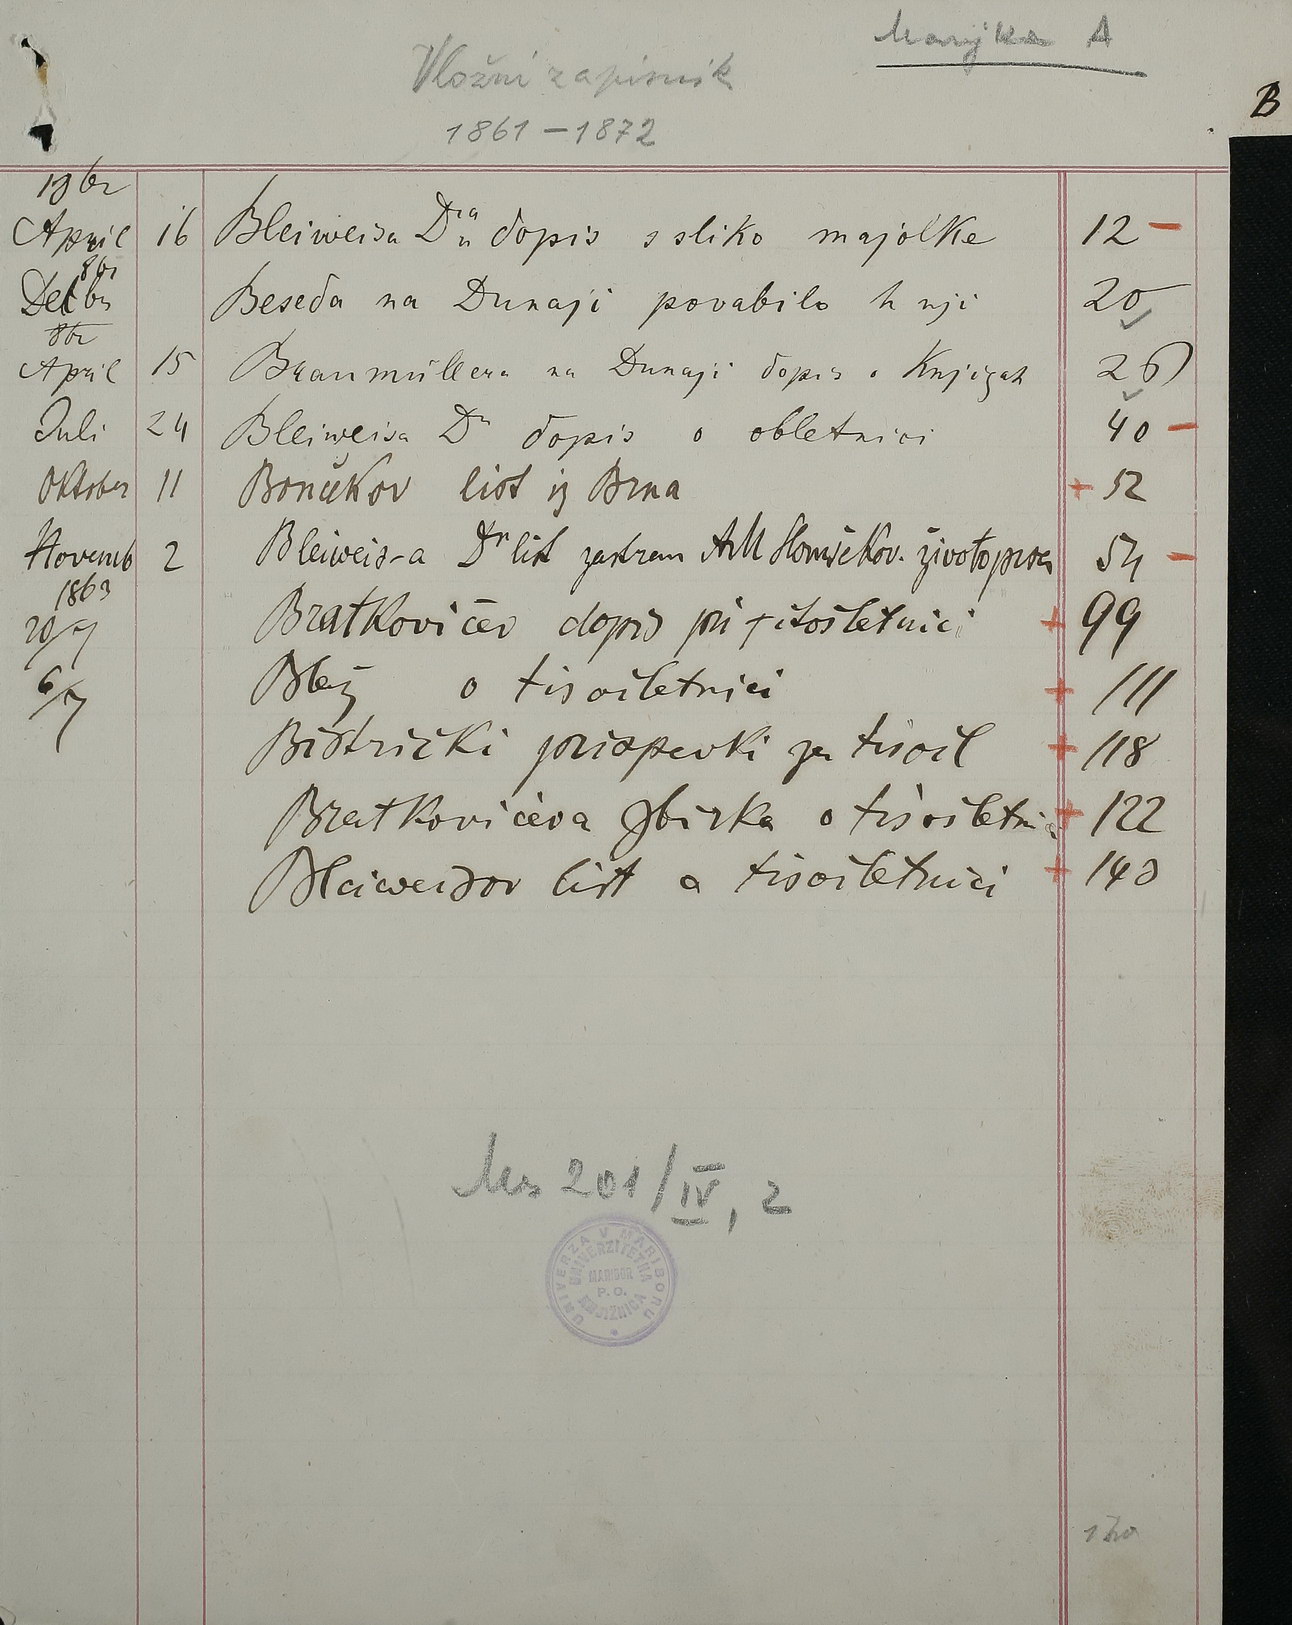 Marijka A
Vložni zapisnik
1861 – 1872
B
April 16 Bleiweisa Dra dopis s sliko majolke 12 –
Beseda na Dunaji povabilo k nji 20
April 15 Braumüllera na Dunaji dopis o Knjigah 26
Juli 24 Bleiweisa Dr dopis o obletnici 40 –
Oktober 11 Bončkov list iz Brna + 52
Novemb 2 Bleiweis-a Dr list zastran AM Slomšekov. životopisa 54 –
1863
Bratkovičev dopis pri + 99
6/7 Blaž o tisočletnici + 111
Bistrički prispevki za tisočl + 118
Bratkovičeva zbirka o tisočletnici + 122
Bleiweisov list o tisočletnici + 140
Ms 201/IV, 2
UNIVERZA V MARIBORU
UNIVERZITETNA
KNJIŽNICA
MARIBOR
P. O.